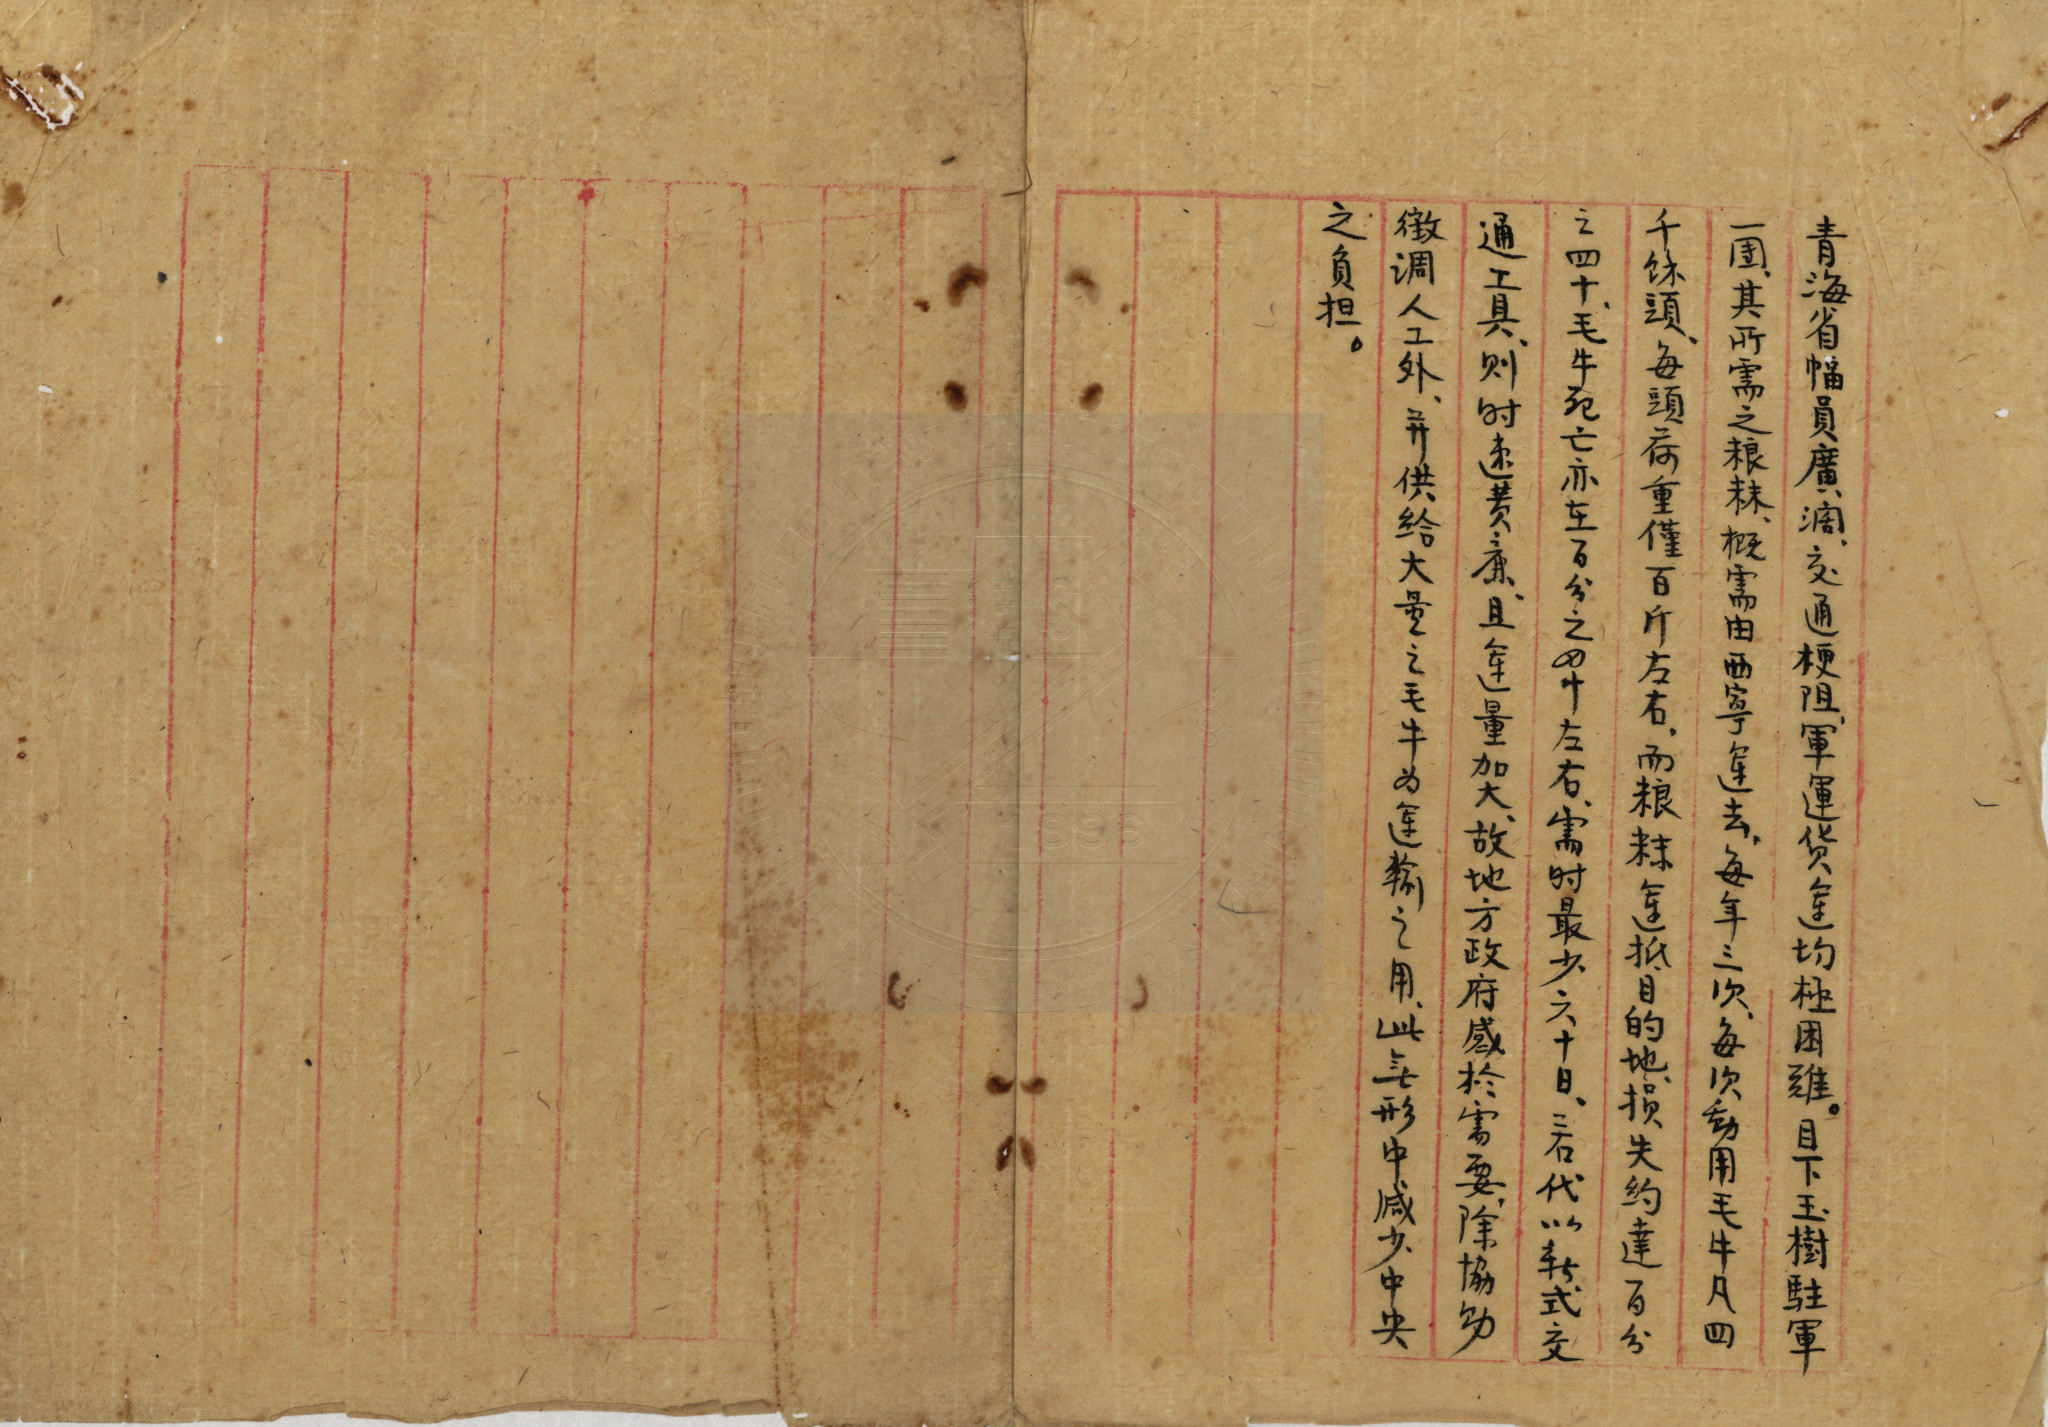 青海省幅員廣濶、交通梗阻、軍運货运均極困難。目下玉樹駐軍
一团、其所需之粮秣、概需由西寧运去、每年三次、每次動用毛牛凡四
千餘頭、每頭荷重僅百斤左右、而粮秣运抵目的地、損失約達百分
之四十、毛牛死亡亦在百分之四十左右、需时最少六十日、若代以新式交
通工具、则时速费廉、且运量加大、故地方政府感於需要、除協助
徵調人工外、并供給大量之毛牛为运輸之用、此無形中减少中央
之負担。